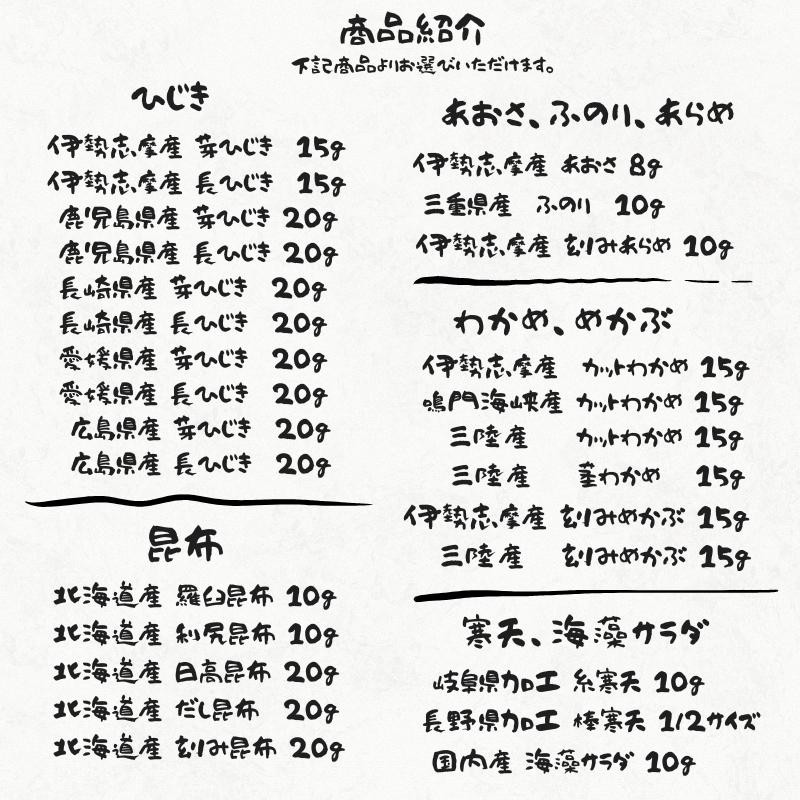 商品紹介
下記商品よりお選びいただけます。
ひじき
伊勢志摩産 芽ひじき 15g
伊勢志摩産 長ひじき 15g
鹿児島県産 芽ひじき 20g
鹿児島県産 長ひじき 20g
長崎県産 芽ひじき 20g
長崎県産 長ひじき 20g
愛媛県産 芽ひじき 20g
愛媛県産 長ひじき 20g
広島県産 芽ひじき 20g
広島県産 長ひじき 20g
昆布
北海道産 羅臼昆布 10g
北海道産 利尻昆布 10g
北海道産 日高昆布 20g
北海道産 だし昆布 20g
北海道産 刻み昆布 20g
あおさ、ふのり、あらめ
伊勢志摩産 あおさ 8g
三重県産 ふのり 10g
伊勢志摩産 刻みあらめ 10g
わかめ、めかぶ
伊勢志摩産 カットわかめ 15g
鳴門海峡産 カットわかめ 15g
三陸産 カットわかめ 15g
三陸産 茎わかめ 15g
伊勢志摩産 刻みめかぶ 15g
三陸産 刻みめかぶ 15g
寒天、海藻サラダ
岐阜県加工 糸寒天 10g
長野県加工 棒寒天 1/2サイズ
国内産 海藻サラダ 10g